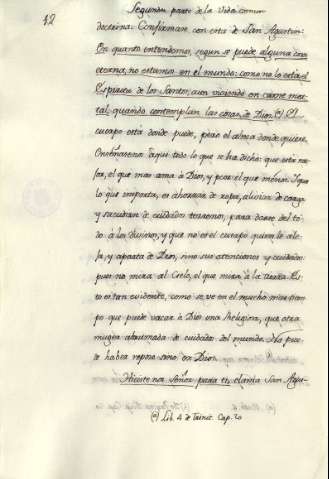 42
Segunda parte de la Vida comun
doctrina: Confirman con esta de San Agustin:
En quanto entendemos, segun se puede alguna cosa
eterna, no estamos en el mundo: como no lo está el
Espiritu de los Santos, aun viviendo en carne mor-
tal, quando contemplan las cosas de Dios. El
cuerpo está donde puede, pero el alma donde quiere.
de aqui todo lo que se ha dicho: que está me-
jor, el que mas ama à Dios, y peor el que menos. Y que
lo que importa, es ahorrar de ropa, alivios de carga
y sacudirse de cuidados terrenos, para darse del to-
do à los divinos, y que no es el cuerpo quien le ale-
ja, y aparta de Dios, sino sus atenciones y cuidados
pues no mira al Cielo, el que mira à la tierra. Es-
to es tan evidente, como se ve en el mucho mas tiem-
po que puede vacar à Dios una Religiosa, que otra
muger abrumada de cuidados del mundo. No pue-
de haber reposo sino en Dios.
Hiciste nos Señor para ti, clama San Agus-
(a) Lib. 4 de Trinit. Cap. 20